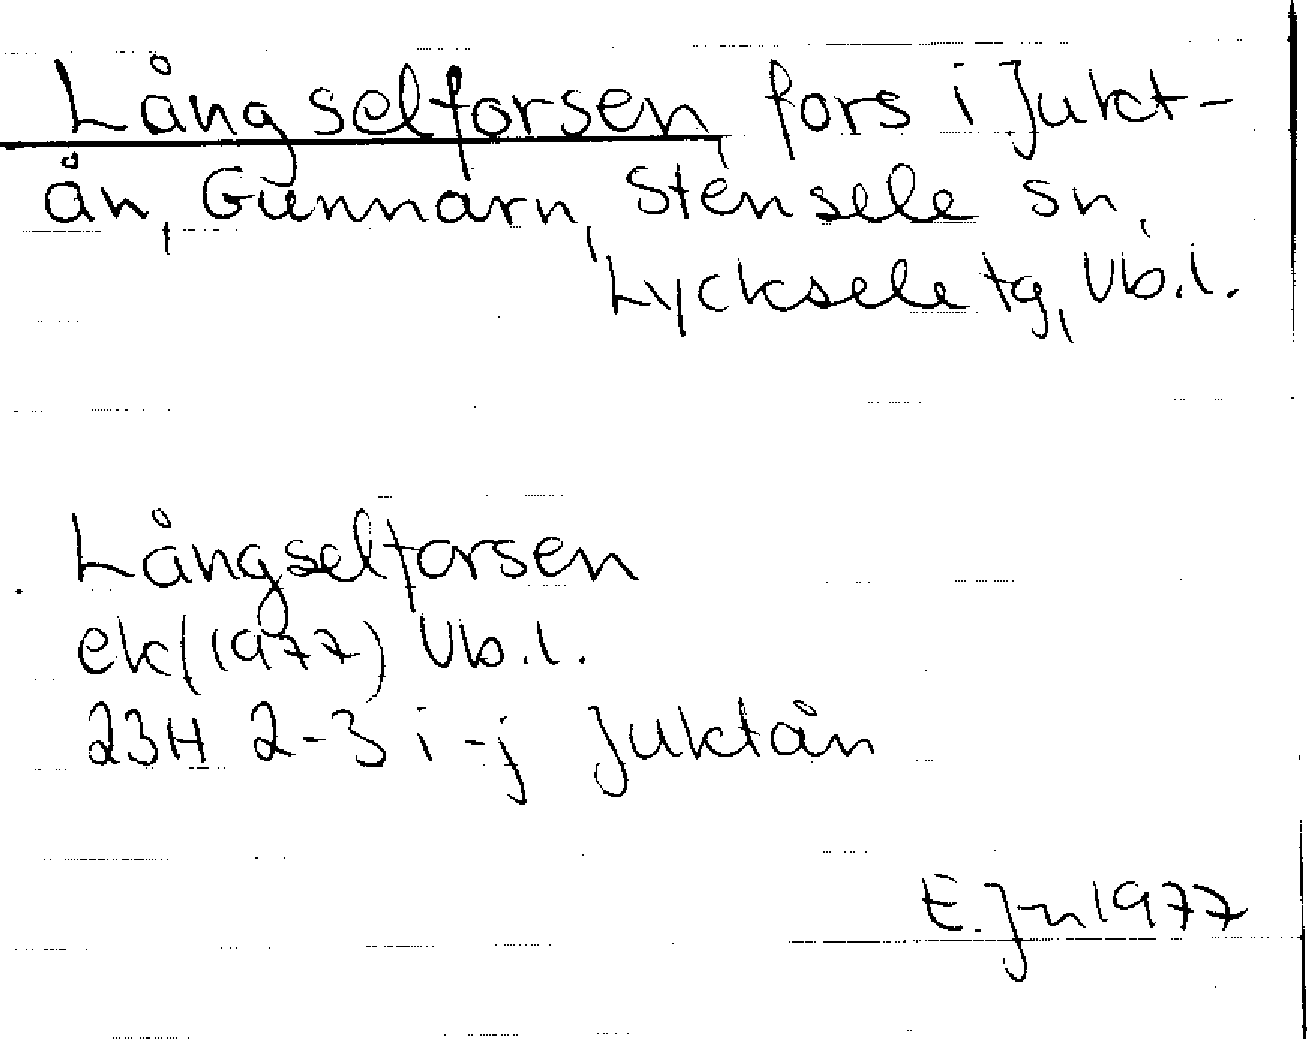 Långselforsen, fors i Jukt-
ån, Gunnarn, Stensele sn,
Lycksele tg, Vb.l.
Långselforsen
ek(1977) Vb.l.
23H 2-3 i-j Juktån
E. Jn 1977